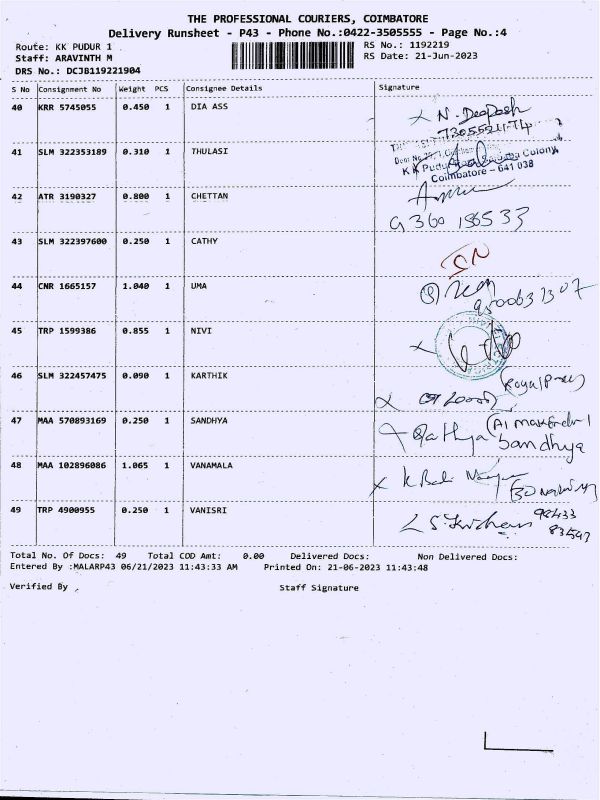 THE PROFESSIONAL COURIERS, COIMBATORE
Delivery Runsheet - P43 - Phone No.:0422-3505555 - Page No.:4
Route: KK PUDUR 1 RS No.: 1192219
Staff: ARAVINTH M RS Date: 21-Jun-2023
DRS No.: DCJB119221904
S No Consignment No Weight PCS Consignee Details Signature
40 KRR 5745055 0.450 1 DIA ASS N. Deepash
41 SLM 322353189 0.310 1 THULASI
Colony,
K K Pudur
Coimbatore - 641 038
42 ATR 3190327 0.800 1 CHETTAN
43 SLM 322397600 0.250 1 CATHY
44 CNR 1665157 1.040 1 UMA
45 TRP 1599386 0.855 1 NIVI
46 SLM 322457475 0.090 1 KARTHIK
47 MAA 570893169 0.250 1 SANDHYA
48 MAA 102896086 1.065 1 VANAMALA
49 TRP 4900955 0.250 1 VANISRI 98433
83597
Total No. Of Docs: 49 Total COD Amt: 0.00 Delivered Docs: Non Delivered Docs:
Entered By :MALARP43 06/21/2023 11:43:33 AM Printed On: 21-06-2023 11:43:48
Verified By Staff Signature